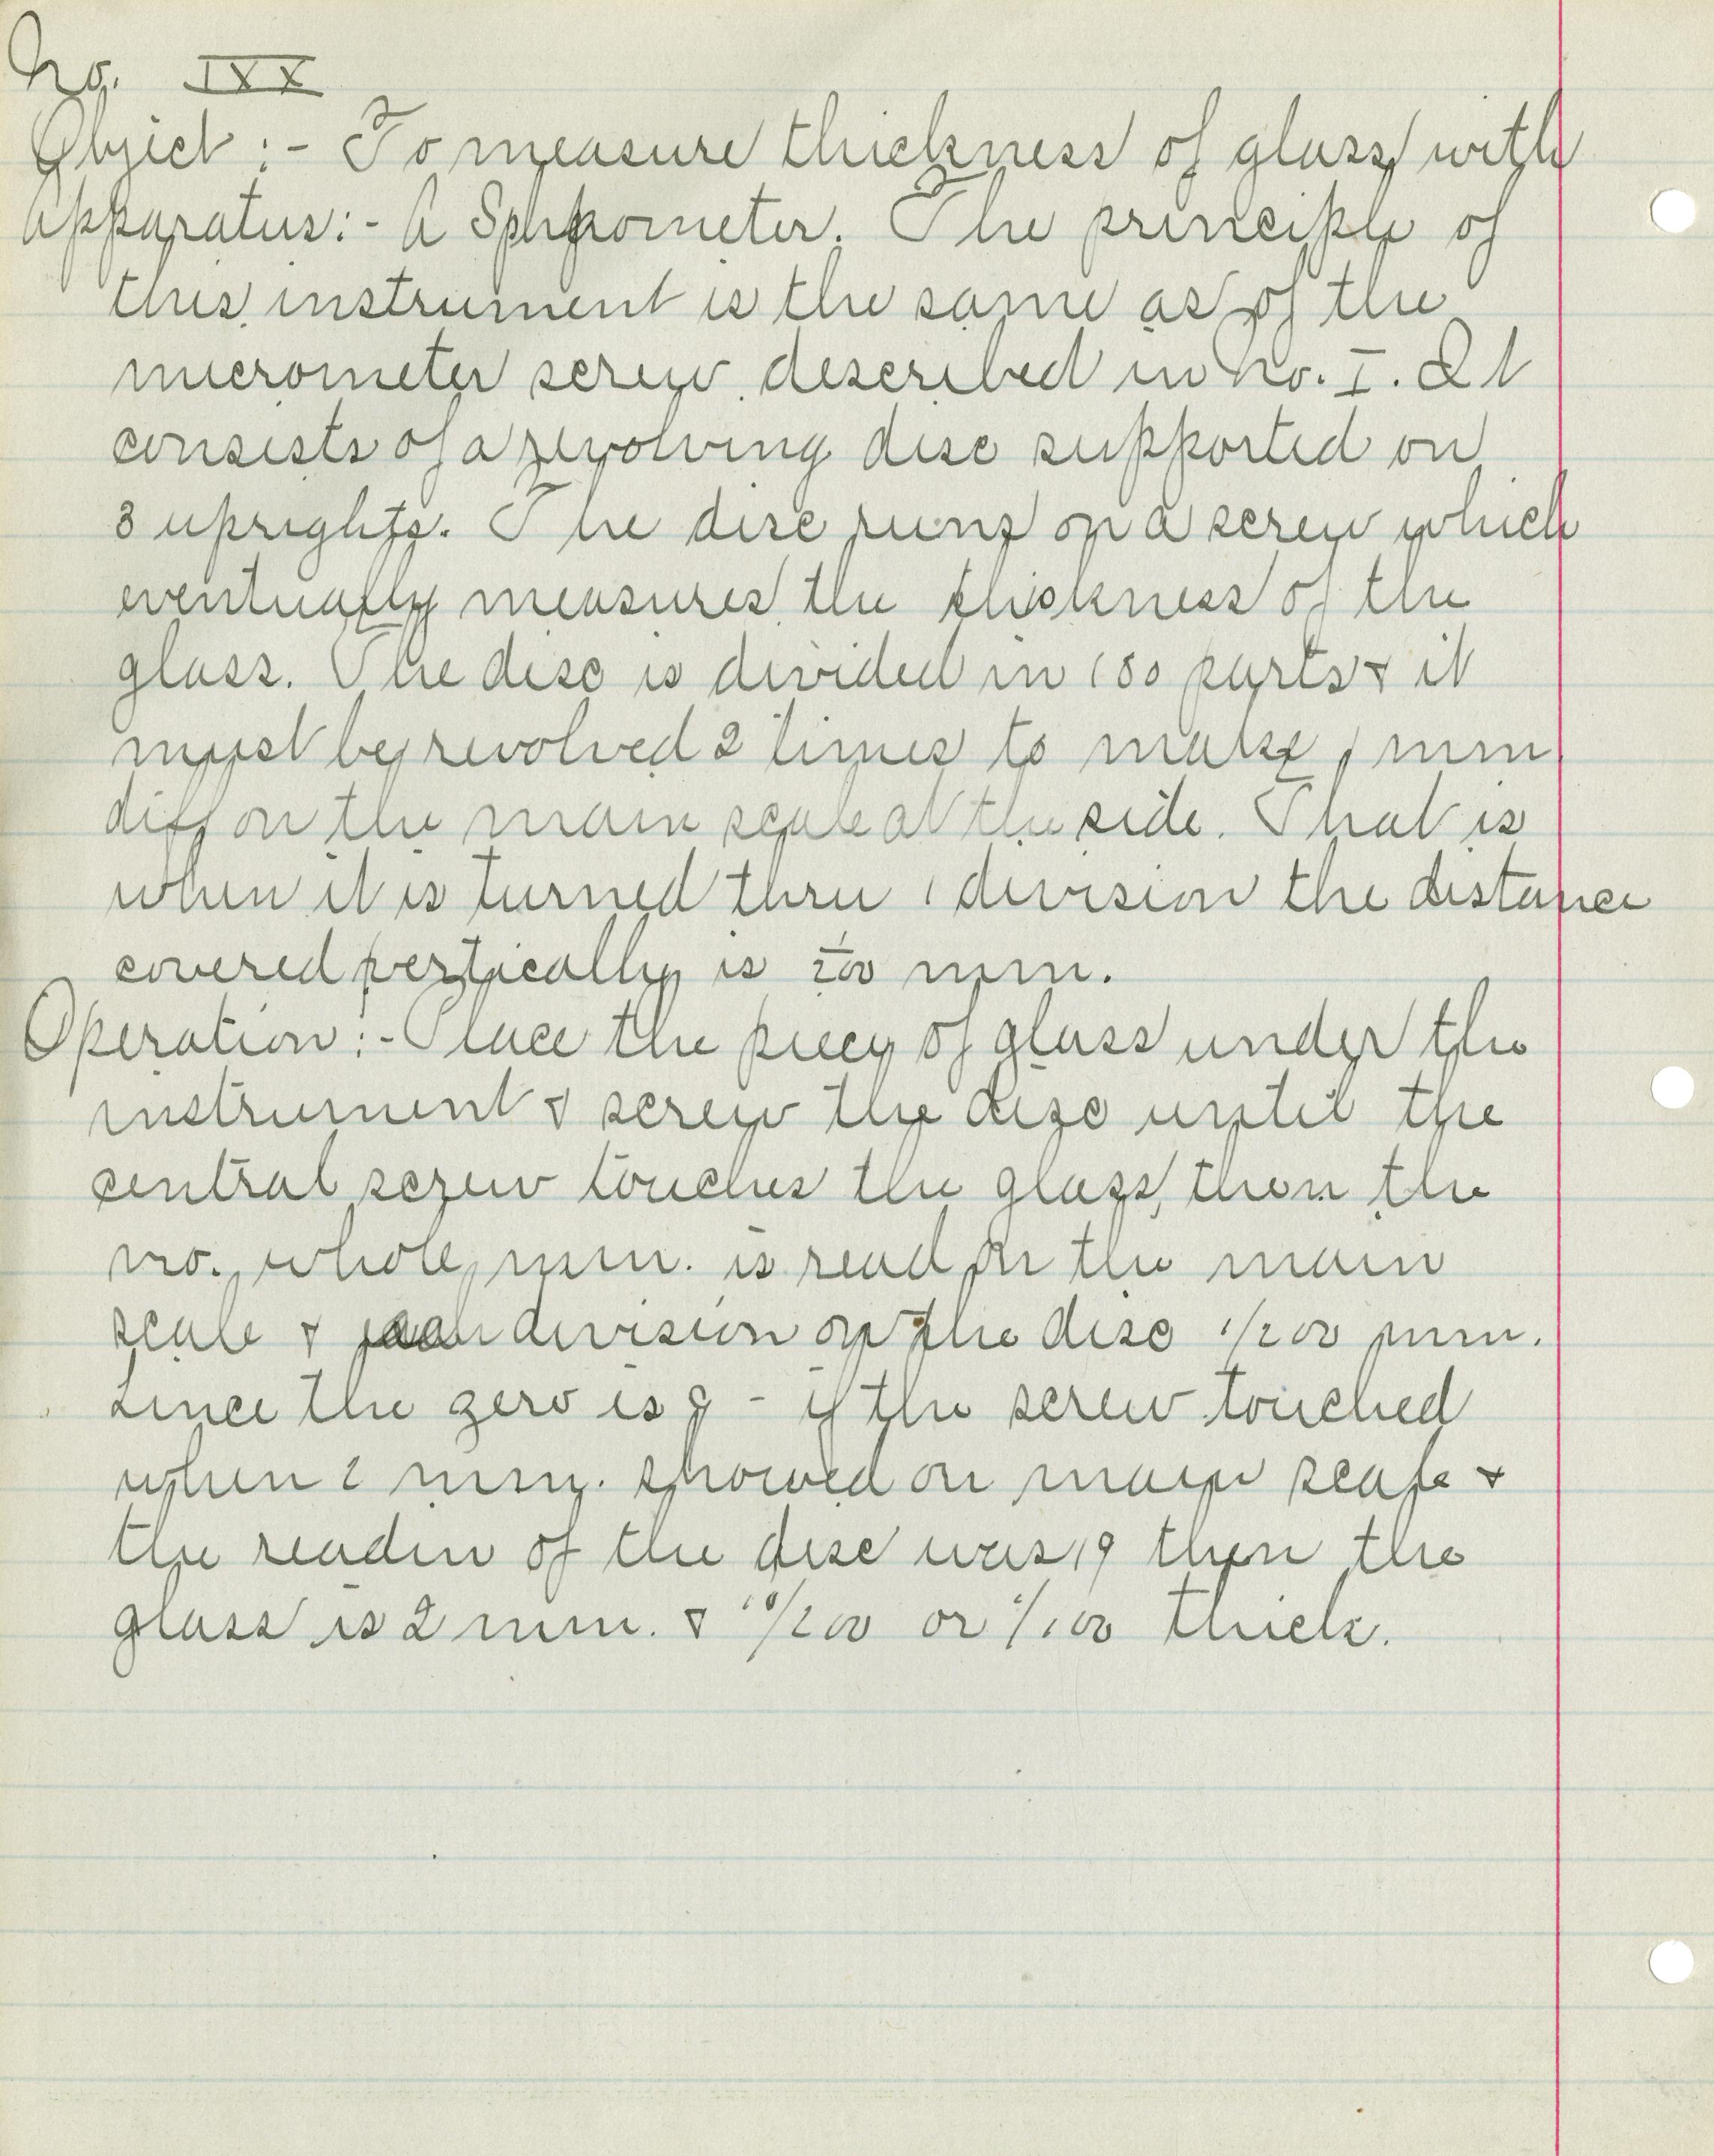 No. IXX
Object :- To measure thickness of glass with
Apparatus:- A Sphrometer. The principle of
this instrument is the same as of the
micrometer screw described in No. I. It
consists of a revolving disc supported on
3 uprights. The disc runs on a screw which
eventually measures the thickness of the
glass. The disc is divided in 100 parts & it
must be revolved 2 times to make 1 mm
diff on the main scale at the side. That is
when it is turned thru 1 division the distance
covered vertically is 1/200 mm.
Operation :- Place the piece of glass under the
instrument & screw the disc until the
central screw touches the glass, then the
no. whole mm. is read on the main
scale & each division on the disc 1/200 mm.
Since the zero is 9 - if the screw touched
when 2 mm. showed on main scale &
the readin of the disc was 19 then the
glass is 2 mm. & 10/200 or /100 thick.